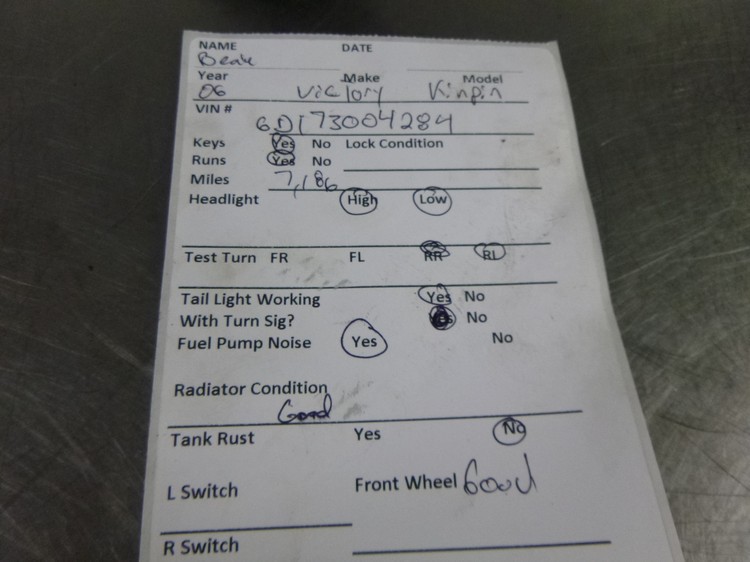 NAME DATE
Beak
Year Make Model
06 Victory Kinpin
VIN #
6D173004284
Keys Yes No Lock Condition
Runs Yes No
Miles 7,186
Headlight High Low
Test Turn FR FL RR RL
Tail Light Working Yes No
With Turn Sig? Yes No
Fuel Pump Noise Yes No
Radiator Condition
Good
Tank Rust Yes No
L Switch Front Wheel Good
R Switch